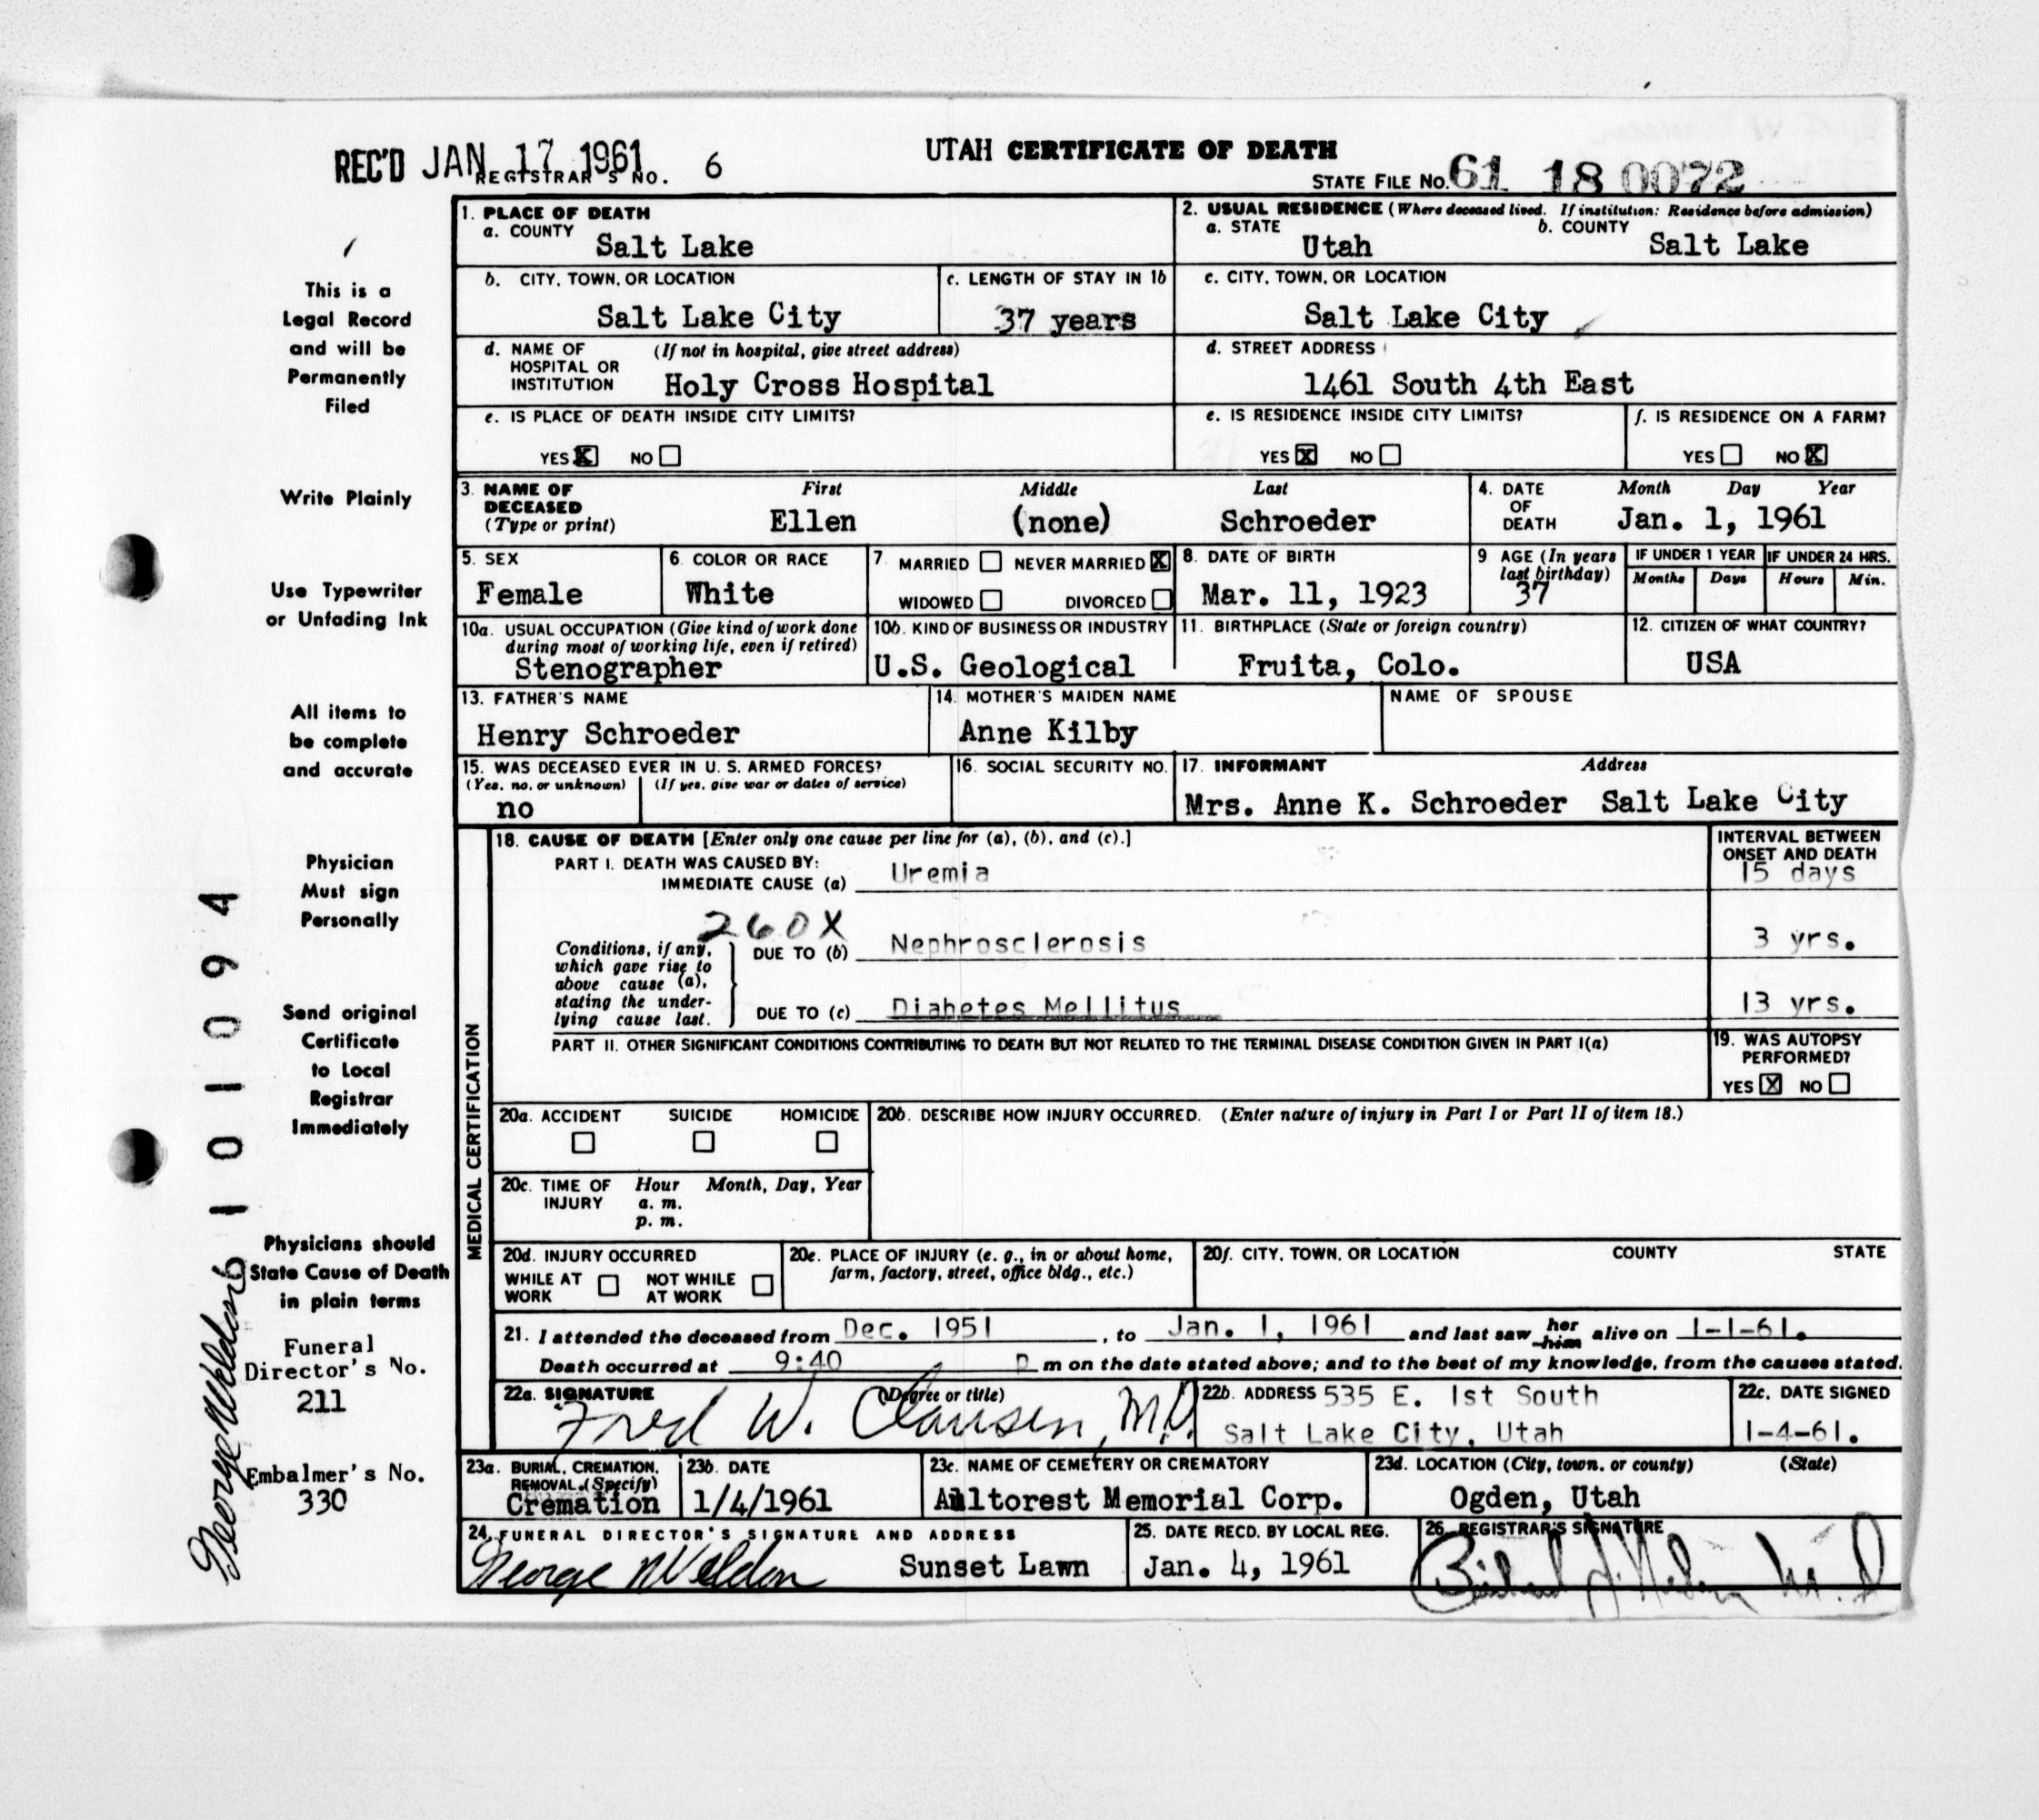 REC'D JAN 17 1961
REGISTRAR'S NO. 6
UTAH CERTIFICATE OF DEATH
STATE FILE NO. 61 18 0072
This is a
Legal Record
and will be
Permanently
Filed
Write Plainly
Use Typewriter
or Unfading Ink
All items to
be complete
and accurate
Physician
Must sign
Personally
Send original
Certificate
to Local
Registrar
Immediately
Physicians should
State Cause of Death
in plain terms
Funeral
Director's No.
211
Embalmer's No.
330
George N Weldon
6101094
1. PLACE OF DEATH
a. COUNTY Salt Lake
2. USUAL RESIDENCE (Where deceased lived. If institution: Residence before admission)
a. STATE Utah b. COUNTY Salt Lake
b. CITY, TOWN, OR LOCATION
Salt Lake City
c. LENGTH OF STAY IN 1b
37 years
c. CITY, TOWN, OR LOCATION
Salt Lake City
d. NAME OF HOSPITAL OR INSTITUTION (If not in hospital, give street address)
Holy Cross Hospital
d. STREET ADDRESS
1461 South 4th East
e. IS PLACE OF DEATH INSIDE CITY LIMITS?
YES X NO
e. IS RESIDENCE INSIDE CITY LIMITS?
YES X NO
f. IS RESIDENCE ON A FARM?
YES NO X
3. NAME OF DECEASED (Type or print)
First Middle Last
Ellen (none) Schroeder
4. DATE OF DEATH Month Day Year
Jan. 1, 1961
5. SEX
Female
6. COLOR OR RACE
White
7. MARRIED NEVER MARRIED X
WIDOWED DIVORCED
8. DATE OF BIRTH
Mar. 11, 1923
9 AGE (In years last birthday)
37
IF UNDER 1 YEAR IF UNDER 24 HRS.
Months Days Hours Min.
10a. USUAL OCCUPATION (Give kind of work done during most of working life, even if retired)
Stenographer
10b. KIND OF BUSINESS OR INDUSTRY
U.S. Geological
11. BIRTHPLACE (State or foreign country)
Fruita, Colo.
12. CITIZEN OF WHAT COUNTRY?
USA
13. FATHER'S NAME
Henry Schroeder
14. MOTHER'S MAIDEN NAME
Anne Kilby
NAME OF SPOUSE
15. WAS DECEASED EVER IN U. S. ARMED FORCES?
(Yes, no, or unknown) (If yes, give war or dates of service)
no
16. SOCIAL SECURITY NO.
17. INFORMANT Address
Mrs. Anne K. Schroeder Salt Lake City
MEDICAL CERTIFICATION
18. CAUSE OF DEATH [Enter only one cause per line for (a), (b), and (c).]
INTERVAL BETWEEN ONSET AND DEATH
PART I. DEATH WAS CAUSED BY:
IMMEDIATE CAUSE (a) Uremia 15 days
260X
Conditions, if any, which gave rise to above cause (a), stating the underlying cause last.
DUE TO (b) Nephrosclerosis 3 yrs.
DUE TO (c) Diabetes Mellitus 13 yrs.
PART II. OTHER SIGNIFICANT CONDITIONS CONTRIBUTING TO DEATH BUT NOT RELATED TO THE TERMINAL DISEASE CONDITION GIVEN IN PART I(a)
19. WAS AUTOPSY PERFORMED?
YES X NO
20a. ACCIDENT SUICIDE HOMICIDE
20b. DESCRIBE HOW INJURY OCCURRED. (Enter nature of injury in Part I or Part II of item 18.)
20c. TIME OF INJURY Hour Month, Day, Year
a. m.
p. m.
20d. INJURY OCCURRED
WHILE AT WORK NOT WHILE AT WORK
20e. PLACE OF INJURY (e. g., in or about home, farm, factory, street, office bldg., etc.)
20f. CITY, TOWN, OR LOCATION COUNTY STATE
21. I attended the deceased from Dec. 1951, to Jan. 1, 1961 and last saw her him alive on 1-1-61.
Death occurred at 9:40 p m on the date stated above; and to the best of my knowledge, from the causes stated.
22a. SIGNATURE (Degree or title)
Fred W. Clausen, M.D.
22b. ADDRESS 535 E. 1st South
Salt Lake City, Utah
22c. DATE SIGNED
1-4-61.
23a. BURIAL, CREMATION, REMOVAL (Specify)
Cremation
23b. DATE
1/4/1961
23c. NAME OF CEMETERY OR CREMATORY
Aultorest Memorial Corp.
23d. LOCATION (City, town, or county) (State)
Ogden, Utah
24. FUNERAL DIRECTOR'S SIGNATURE AND ADDRESS
George N Weldon Sunset Lawn
25. DATE RECD. BY LOCAL REG.
Jan. 4, 1961
26. REGISTRAR'S SIGNATURE